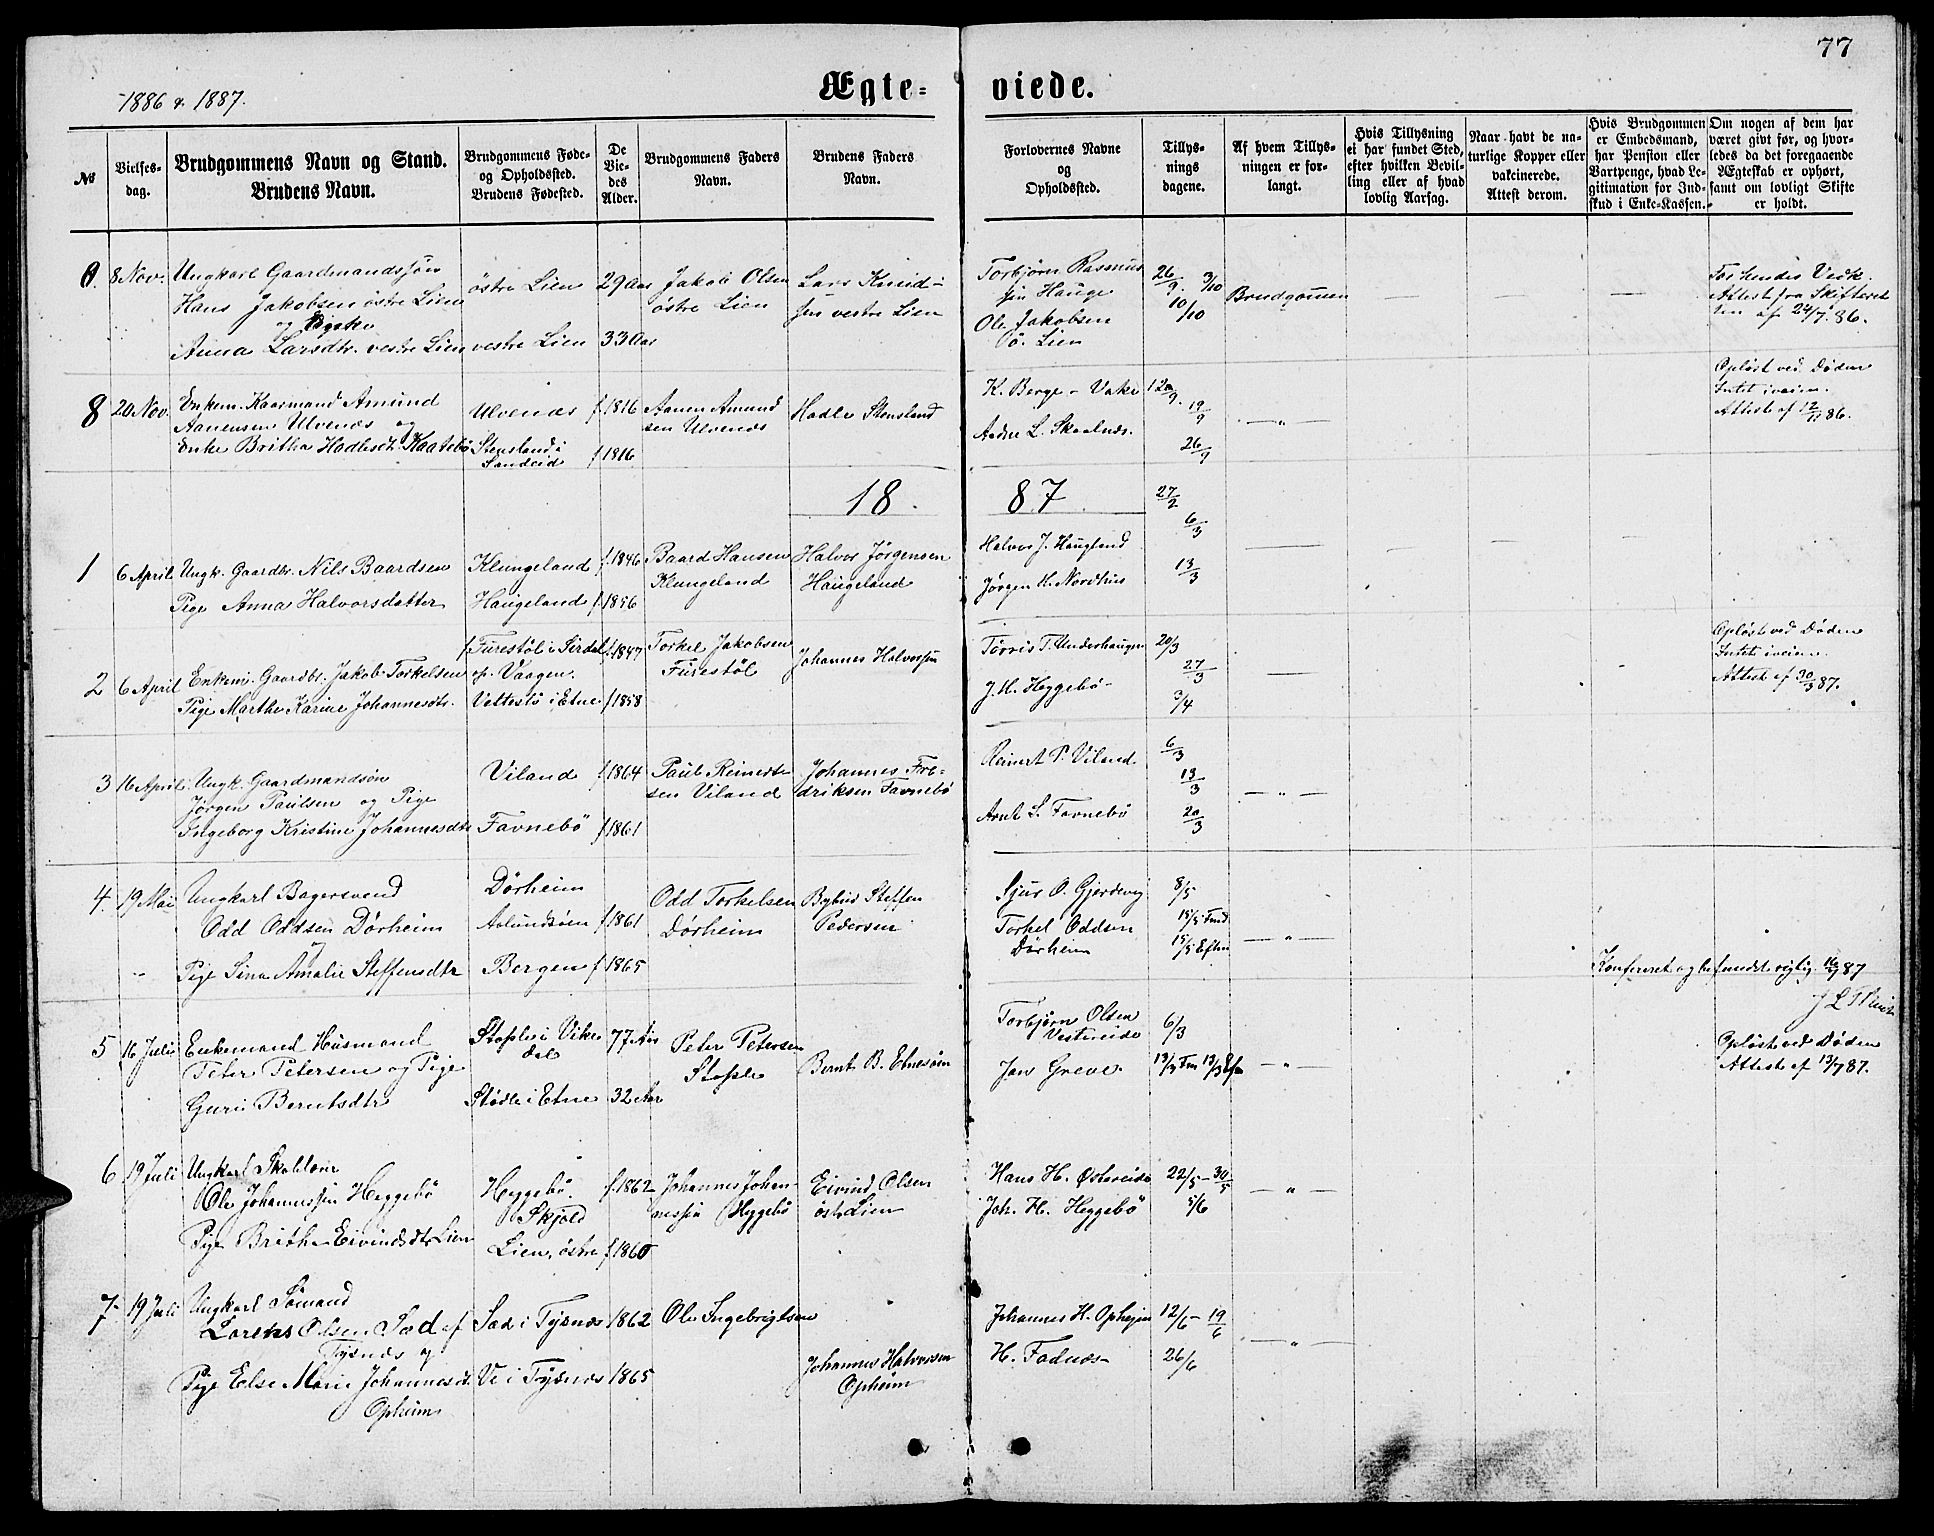 77
1886 & 1887.
Ægteviede.
№
Vielsesdag.
Brudgommens Navn og Stand.
Brudens Navn.
Brudgommens Føde-
og Opholdssted.
Brudens Fødested.
De
Vie-
des
Alder.
Brudgommens Faders
Navn.
Brudens Faders
Navn.
Forlovernes Navne
og
Opholdssted.
Tillys-
nings
dagene.
Af hvem Tillys-
ningen er for-
langt.
Hvis Tillysning
ei har fundet Sted,
efter hvilken Bevil-
ling eller af hvad
lovlig Aarsag.
Naar havt de na-
turlige Kopper eller
vakcinerede.
Attest derom.
Hvis Brudgommen
er Embedsmand,
har Pension eller
Vartpenge, hvad Le-
gitimation for Ind-
skud i Enke-Kassen.
Om nogen af dem har
været givt før, og hvor-
ledes da det foregaaende
Ægteskab er ophørt,
samt om lovligt Skifte
er holdt.
8 Nov.
Ungkarl Gaardmandssøn
Hans Jakobsen østre Lien
og
Anna Larsdtr. vestre Lien
østre Lien
vestre Lien
29 Aar
33 Aar
Jakob Olsen
østre Lien
Lars Knud-
sen vestre Lien
Torbjørn Rasmus
sen Hauge
Ole Jakobsen
ø. Lien
26/9. 3/10
10/10
Brudgommen
For hendes Vedk.
Attest fra Skifteret
ten af 24/7. 86.
8
20 Nov.
Enkem. Kaarmand Amund
Aanensen Ulvenes og
Enke Britha Hadlesdtr. Kaatebø
Ulvenes
Stensland i
Sandeid
f 1816
f 1816
Aanen Amund
sen Ulvenes
Hadle Stensland
K. Berge - Vake
Aadne L. Skaalnes.
12/9.
19/9
26/9
— „ —
Opløst ved Døden
Intet iveien.
Attest af 12/11 86.
18.87.
1
6 April
Ungk. Gaardbr. Nils Baardsen
Pige Anna Halvorsdatter
Klungeland
Haugeland
f. 1846
f. 1856
Baard Hansen
Klungeland
Halvor Jørgensen
Haugeland
Halvor J. Haugland
Jørgen H. Nordhus
27/2
6/3
13/3
2
6 April
Enkem. Gaardbr. Jakob Torkelsen
Pige Marthe Karine Johannesdtr.
f Furestøl i Sirdal
op. Vaagen.
Vettestø i Etne
f. 1847
f 1858
Torkel Jakobsen
Furestøl
Johannes Halvorsen
Torris T. Underhaugen
J. H. Heggebø
20/3
27/3
3/4
Opløst ved Døden
Intet iveien.
Attest af 30/3 87.
3
16 April
Ungk. Gaardmandsøn
Jørgen Paulsen og Pige
Ingeborg Kristine Johannesdtr
Viland
Favnebø
f 1864
f 1861
Paul Reinert-
sen Viland
Johannes Fre-
driksen Favnebø
Reinert P. Viland
Arnt L. Favnebø
6/3
13/3
20/3
— „ —
4.
19 Mai
Ungkarl Bagersvend
Odd Oddsen Dørheim
og
Pige Sina Amalie Steffensdtr
Dørheim
Aalundsøen
Bergen
f 1861
f 1865
Odd Torkelsen
Dørheim
Bybud Steffen
Pedersen
Sjur O. Gjerdevig
Torkel Oddsen
Dørheim
8/5
15/5 Fmd
15/5 Eftm
— „ —
Konfereret og befundet rigtig 16/7 87
5
16 Juli
Enkemand Husmand
Peter Petersen og Pige
Guri Berntsdtr
Stople i Vike
dal
Stødle i Etne
77 Aar
32 Aar
Peter Petersen
Stople
Bernt B. Etnesøen
Torbjørn Olsen
Vestreide
Jan Greve.
6/3
13/3 Fm 13/3 Efm
— „ —
Opløst ved Døden
Attest af 13/7 87.
6
19 Juli
Ungkarl Skolelærer
Ole Johannessen Heggebø
Pige Brithe Eivindsdtr Lien
Heggebø.
Skjold
Lien, østre
f. 1862
f. 1860
Johannes Johan-
nessen Heggebø
Eivind Olsen
østre Lien
Hans H. Østreide
Joh. H. Heggebø
22/5 - 30/5
5/6
— „ —
7
19 Juli
Ungkarl Sømand
Lorents Olsen Sæd af
Tysnes og
Pige Else Marie Johannesdt.
Opheim
Sæd i Tysnes
Ve i Tysnes
1862
1865
Ole Ingebrigtsen
Johannes Halvorsen
Opheim
Johannes H. Opheim
H. Fadnes
12/6 - 19/6
26/6
— „ —